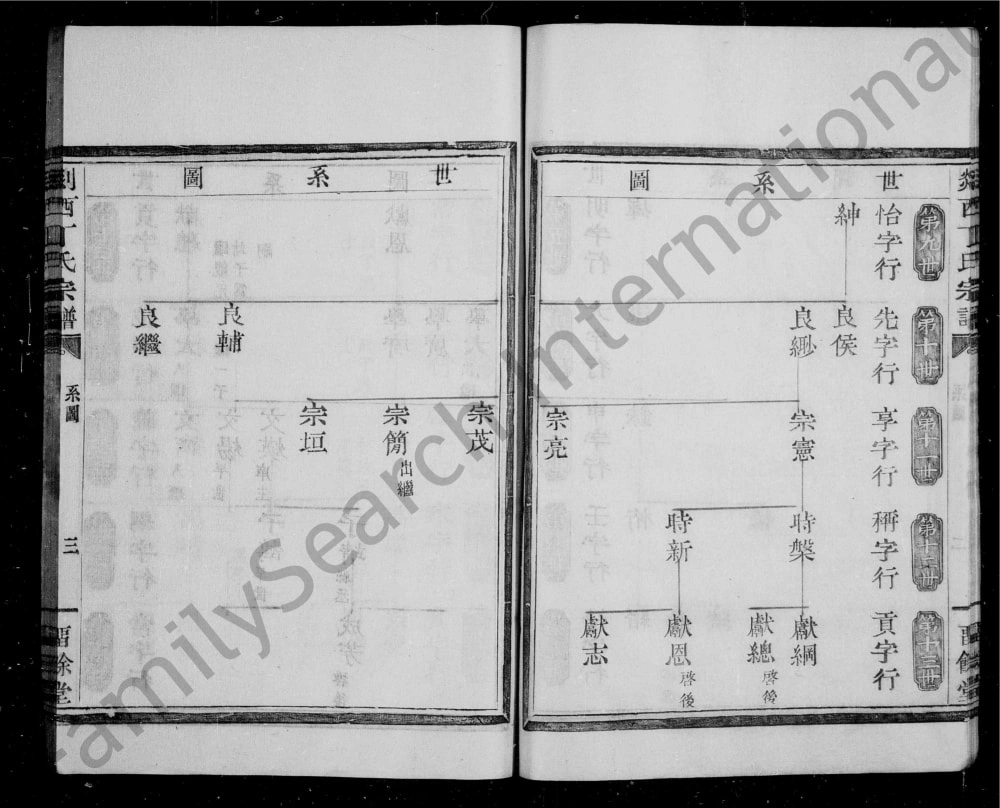 世系圖
第九世
第十世
第十一世
第十二世
第十三世
怡字行
先字行
享字行
稱字行
貢字行
紳
良侯
良緲
宗憲
時槃
獻綱
獻總 啓後
時新
獻恩 啓後
獻志
宗亮
西丁氏宗譜
世系圖
宗茂
宗簡 出繼
宗垣
良輔
良繼
西丁氏宗譜
系圖
三
留餘堂
FamilySearch International